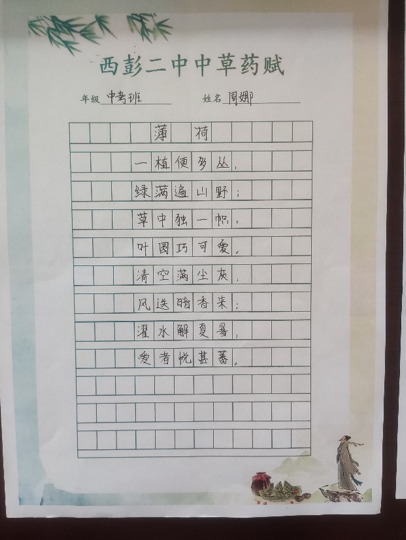 西彭二中中草药赋
年级 中考班 姓名 周娜
薄 荷
一植便多丛,
绿满遍山野;
草中独一帜,
叶圆巧可爱。
清空满尘灰,
风迭暗香来;
濯水解夏暑,
爱者悦甚蕃。